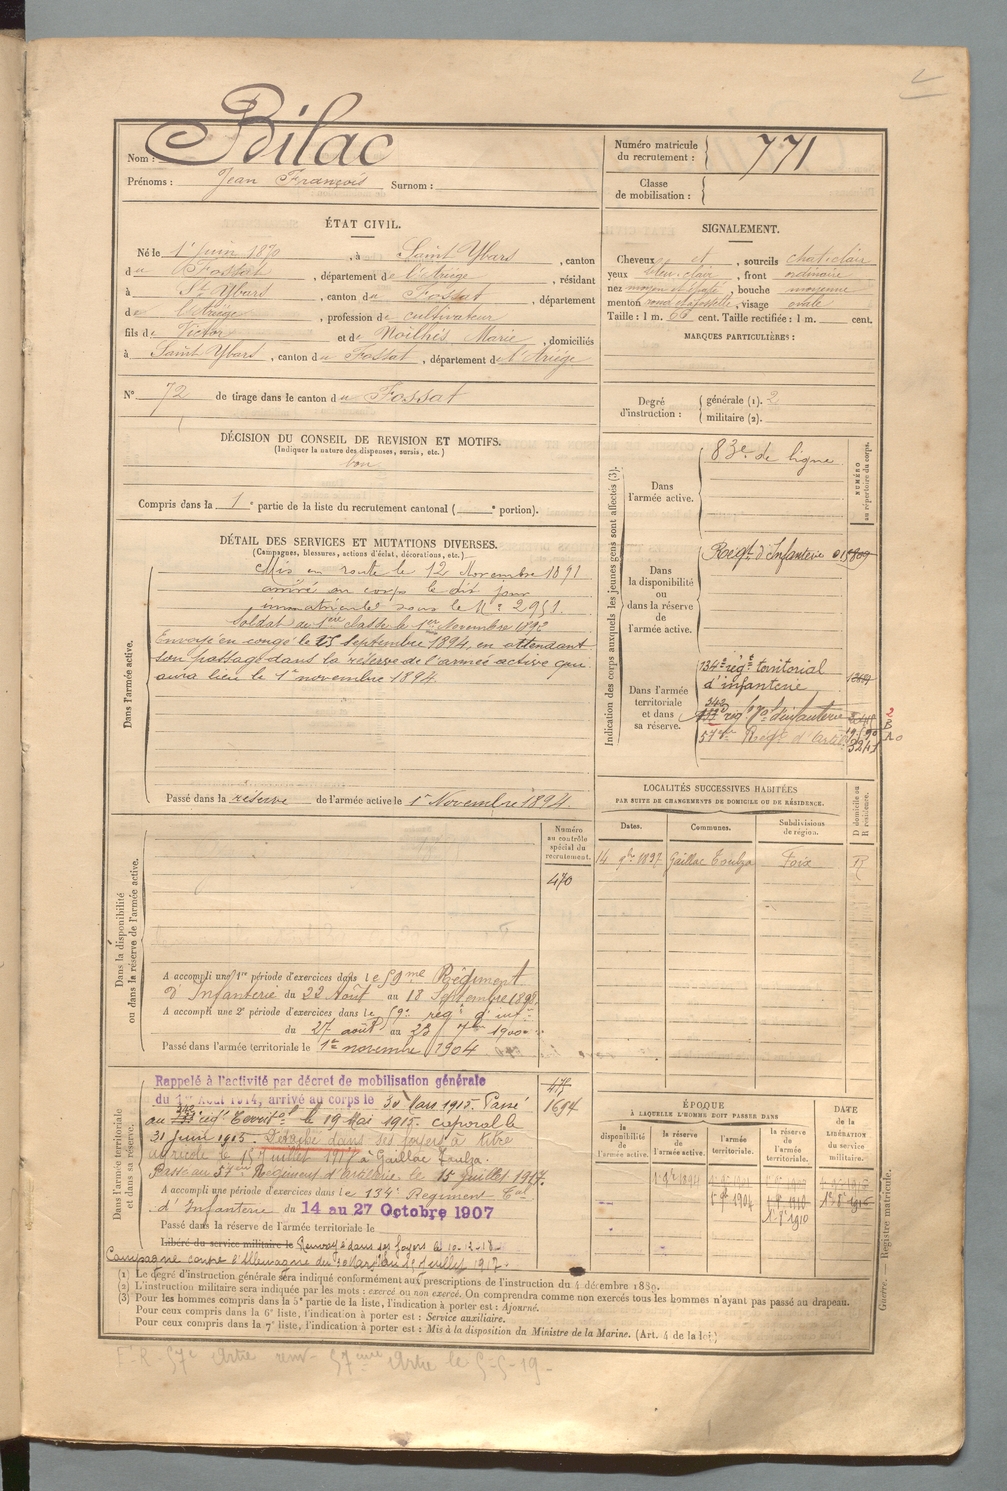 Nom : Bilac
Prénoms : Jean François Surnom :
ÉTAT CIVIL.
Né le 1er Juin 1870, à Saint Ybars, canton
du Fossat, département de l'Ariège, résidant
à St Ybars, canton du Fossat, département
de l'Ariège, profession de cultivateur
fils de Victor et de Noilhès Marie, domiciliés
à Saint Ybars, canton du Fossat, département de l'Ariège
N° 72 de tirage dans le canton du Fossat
DÉCISION DU CONSEIL DE REVISION ET MOTIFS.
(Indiquer la nature des dispenses, sursis, etc.)
bon
Compris dans la 1e partie de la liste du recrutement cantonal ( e portion).
DÉTAIL DES SERVICES ET MUTATIONS DIVERSES.
(Campagnes, blessures, actions d'éclat, décorations, etc.)
Dans l'armée active.
Mis en route le 12 Novembre 1891
arrivé au corps le dit jour
immatriculé sous le N° 2951.
Soldat de 1ère classe le 1er Novembre 1892
Envoyé en congé le 25 Septembre 1894, en attendant
son passage dans la réserve de l'armée active qui
aura lieu le 1er novembre 1894.
Passé dans la réserve de l'armée active le 1er Novembre 1894
Dans la disponibilité
ou dans la réserve de l'armée active.
Numéro
au contrôle
spécial du
recrutement.
470
A accompli une 1re période d'exercices dans le 59me Régiment
d'Infanterie du 22 Août au 18 Septembre 1898.
A accompli une 2e période d'exercices dans le 59e régt d'inf.
du 27 août au 23 7bre 1900
Passé dans l'armée territoriale le 1er novembre 1904
Dans l'armée territoriale
et dans sa réserve.
Rappelé à l'activité par décret de mobilisation générale
du 1er Août 1914, arrivé au corps le 30 Mars 1915. Passé
au régt Territ. le 19 Mai 1915. caporal le
31 Juin 1915. Détaché dans ses foyers à titre
agricole le 15 juillet 1917 à Gaillac Toulza.
Passé au 57ème Régiment d'artillerie le 15 Juillet 1917.
A accompli une période d'exercices dans le 134e Régiment Tal
d'Infanterie du 14 au 27 Octobre 1907
Passé dans la réserve de l'armée territoriale le
Libéré du service militaire le Renvoyé dans ses foyers le 10-12-18
Campagne contre l'Allemagne du 30 Mars au Juillet 1917.
1694
Numéro matricule
du recrutement : 771
Classe
de mobilisation :
SIGNALEMENT.
Cheveux et, sourcils chat. clair
yeux bleu clair, front ordinaire
nez moyen, bouche moyenne
menton rond à fossette, visage ovale
Taille : 1 m. 66 cent. Taille rectifiée : 1 m. cent.
MARQUES PARTICULIÈRES :
Degré
d'instruction :
générale (1). 2
militaire (2).
Indication des corps auxquels les jeunes gens sont affectés (3).
NUMÉRO
au répertoire du corps.
Dans
l'armée active.
83e de ligne
Dans
la disponibilité
ou
dans la réserve
de
l'armée active.
Régt d'Infanterie
Dans l'armée
territoriale
et dans
sa réserve.
134e régt territorial
d'infanterie
régt d'infanterie
57e Régt d'Artil.
LOCALITÉS SUCCESSIVES HABITÉES
PAR SUITE DE CHANGEMENTS DE DOMICILE OU DE RÉSIDENCE.
Dates. Communes. Subdivisions
de région. D domicile ou
R résidence.
14 9bre 1897 Gaillac Toulza Foix R
ÉPOQUE
À LAQUELLE L'HOMME DOIT PASSER DANS
DATE
de la
LIBÉRATION
du service
militaire.
la
disponibilité
de
l'armée active.
la réserve
de
l'armée active.
l'armée
territoriale.
la réserve
de
l'armée
territoriale.
1er 9bre 1894
1er 9bre 1904
1er 9bre 1910
Guerre. — Registre matricule.
(1) Le degré d'instruction générale sera indiqué conformément aux prescriptions de l'instruction du 4 décembre 1889.
(2) L'instruction militaire sera indiquée par les mots : exercé ou non exercé. On comprendra comme non exercés tous les hommes n'ayant pas passé au drapeau.
(3) Pour les hommes compris dans la 5e partie de la liste, l'indication à porter est : Ajourné.
Pour ceux compris dans la 6e liste, l'indication à porter est : Service auxiliaire.
Pour ceux compris dans la 7e liste, l'indication à porter est : Mis à la disposition du Ministre de la Marine. (Art. 4 de la loi)
57e Artie 57ème Artie le 5-5-19-